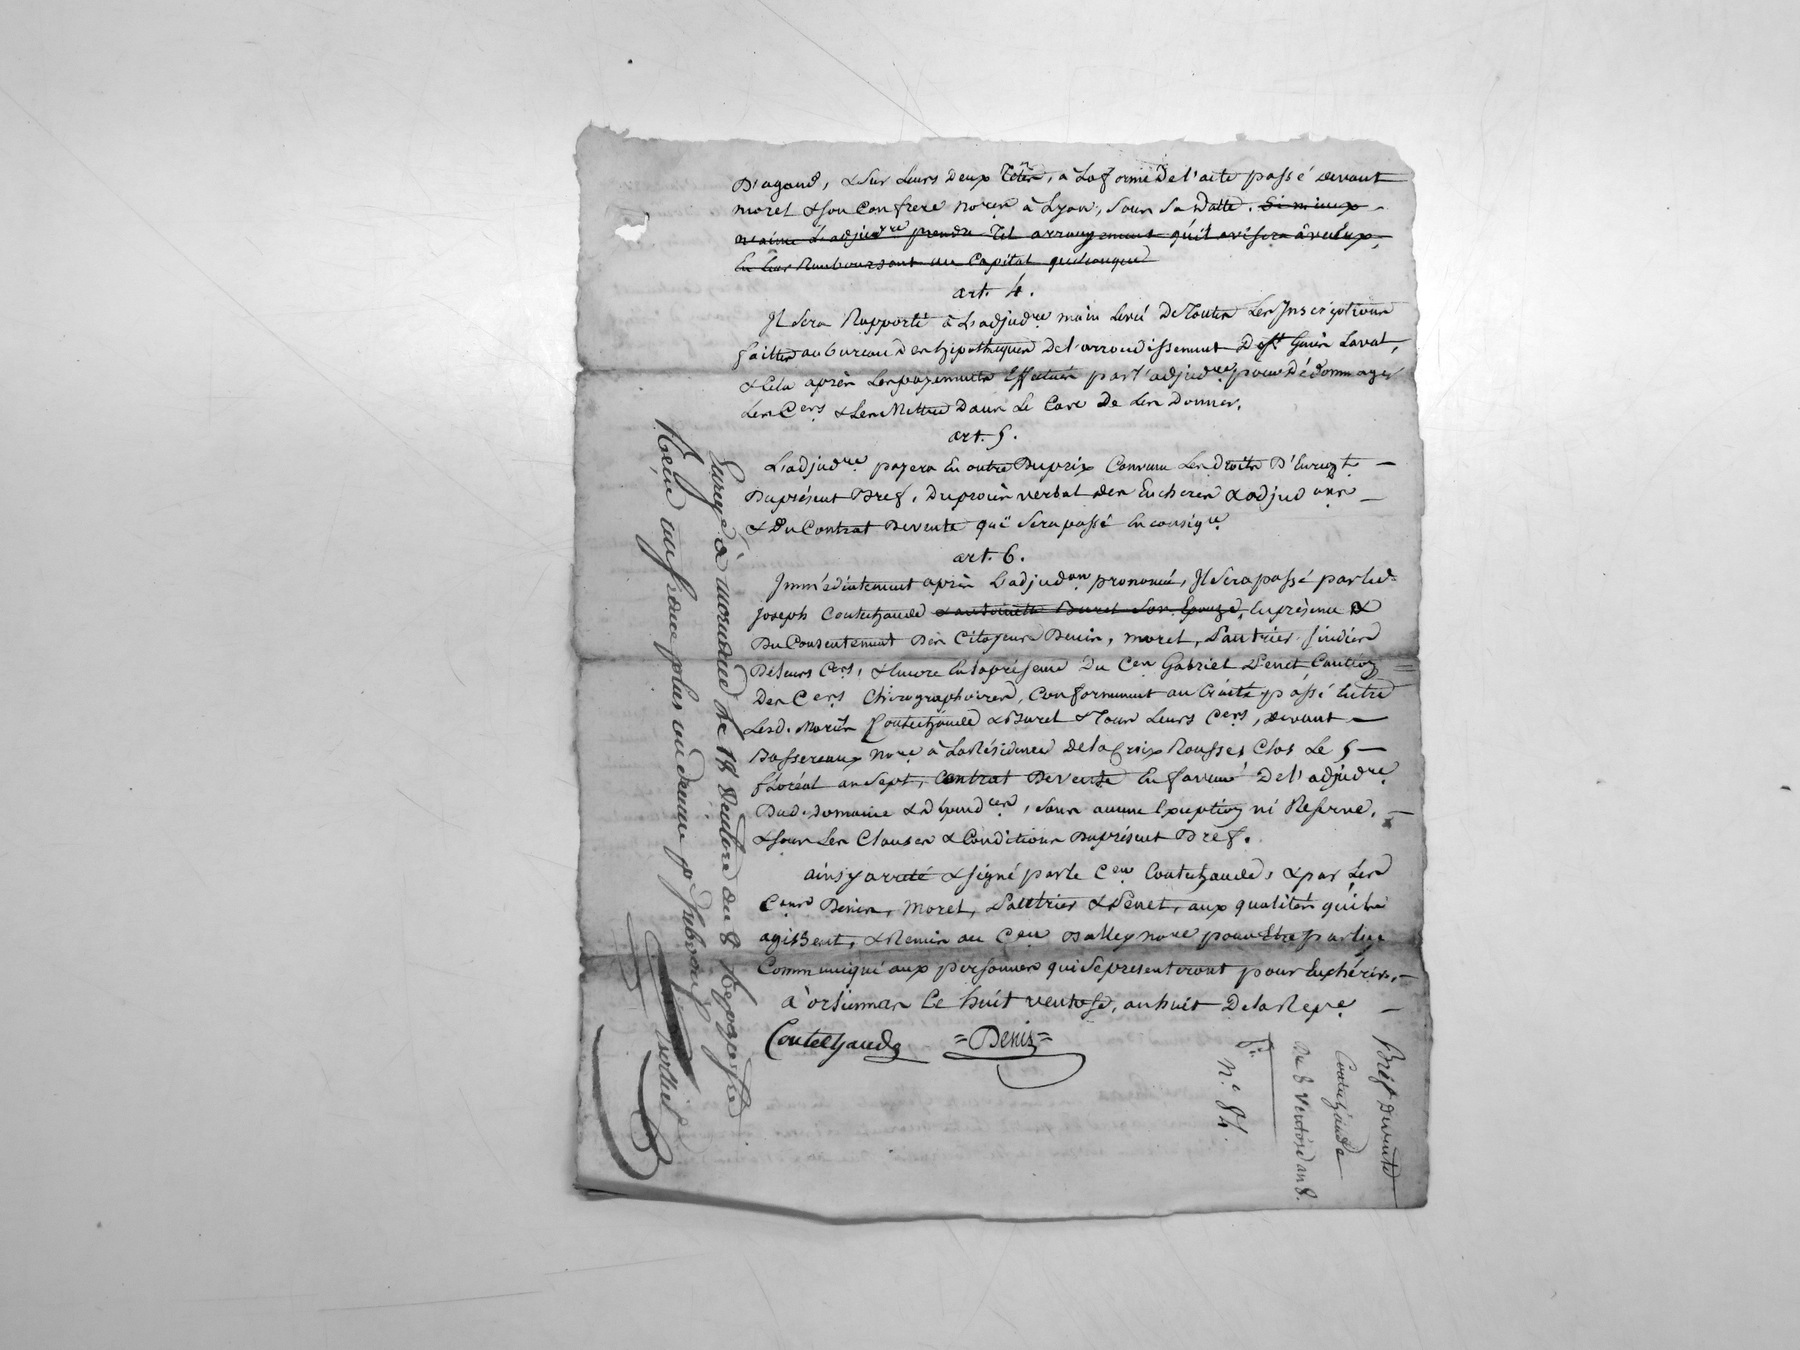 D'agaud, & sur leurs deux Têtes, à la forme de l'acte passé devant
moret & son Confrere no.res à Lyon, sous sa datte. Si mieux
n'aime l'adjud.re prendre tel arrangement qu'il avisera avec eux,
en leur Remboursant un Capital quelconque
art. 4.
Il sera Rapporté à L'adjud.re main levée de Toutes les Inscriptions
faittes au bureau des hipothèques de l'arrondissement
& cela après les payements Effectués par l'adjud.re pour
les C.ers & les Mettre dans le Cas de les donner.
art. 5.
L'adjud.re payera en outre Du prix Convenu les droits D'Enregt. —
Du présent Bref, du procès verbal des Encheres & adjud.ons —
& Du Contrat De vente qui sera passé en conséq.ce
art. 6.
Immédiatement après L'adjud.on prononcée, Il sera passé par led.
Joseph Coutechaude & antoinette Buret son Epouze, en présence &
Du Consentement Des Citoyens Denis, moret, Sautrier sindics
De leurs C.ers, & encore en la présence Du C.en Gabriel Penet Caution
Des C.ers Chirographaires, Conformement au traité passé Entre
Lesd. Mariés Coutechaude & Buret & Tous Leurs C.ers, devant —
Bassereaux No.re à la Résidence de la Croix Rousse, Clos Le 5 —
floréal an sept, Contrat De vente En faveur De l'adjud.re
Dud. Domaine & Dépend.ces, sans aucune Exception ni Reserve, —
& sous Les Clauses & Conditions Du présent Bref.
ainsy arreté & signé par le C.en Coutechaude, & par Les
C.ens Denis, Moret, Sautrier & Penet, aux qualités qu'ils
agissent, & Remis au C.en no.re pour Etre par luy
Communiqué aux personnes qui se presenteront pour Enchérir. —
à orliennas le huit ventose, an huit De la Rep.e —
Coutechaude =Denis=
Enreg.é à mornand le 18 ventose an 8 Rep
Reçu un franc plus un decime p.r subvention
Bref De vente
Coutechaude
Du 8 Ventose an 8.
n.° 84.